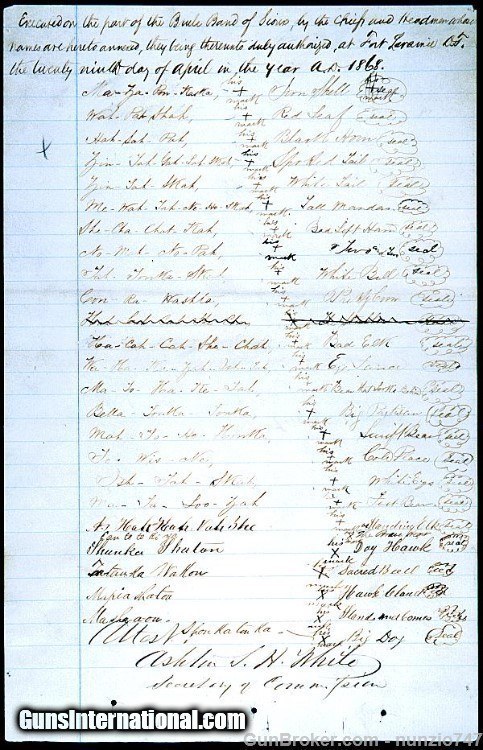 Executed on the part of the Brule Band of Sioux, by the Chiefs and Headmen whose
names are hereto annexed, they being thereunto duly authorized, at Fort Laramie D.T.
the twenty ninth day of April in the year A.D. 1868.
Ma-Zа-Pon-Kaska, his + mark Iron Shell + seal
Wah-Pat-Shah, his + mark Red Leaf seal
Hah-Sah-Pah, his + mark Black Horn seal
Zin-Tah-Gah-Lat-Skah his + mark Spotted Tail seal
Zin-Tah-Skah, his + mark White Tail seal
Me-Wah-Tah-Ne-Ho-Skah, his + mark Tall Mandan seal
She-Cha-Chat-Kah, his + mark Bad Left Hand seal
No-Mah-No-Pah, his + mark Two & Two seal
Tah-Tonka-Skah, his + mark White Bull seal
Con-Ra-Washta, his + mark Pretty Coon seal
Ha-Cah-Cah-She-Chah, his + mark Bad Elk seal
his + mark Eye Lance seal
Ma-To-Ha-Ke-Tah, his + mark Bear that looks behind seal
Bella-Tonka-Tonka, his + mark Big Partisan seal
Mah-To-Ho-Honka, his + mark Swift Bear seal
To-Wis-Ne, his + mark Cold Place seal
Ish-Tah-Skah, his + mark White Eyes seal
Ma-Ta-Loo-Zah his + mark Fast Bear seal
As Hah Hah Nah She his + mark Standing Elk seal
Can te te Ki ya The Brave Heart
Shunka Shaton his x mark Day Hawk seal
Tatanka Wakon his x mark Sacred Bull seal
Mapia Shaton his x mark Hawk Cloud seal
Masha a ow his x mark Stands and Comes seal
Shonka tonka his x mark Big Dog seal
Attest
Ashton S. H. White
Secretary of Commission
GunsInternational.com™
GunBroker.com - nunzio747